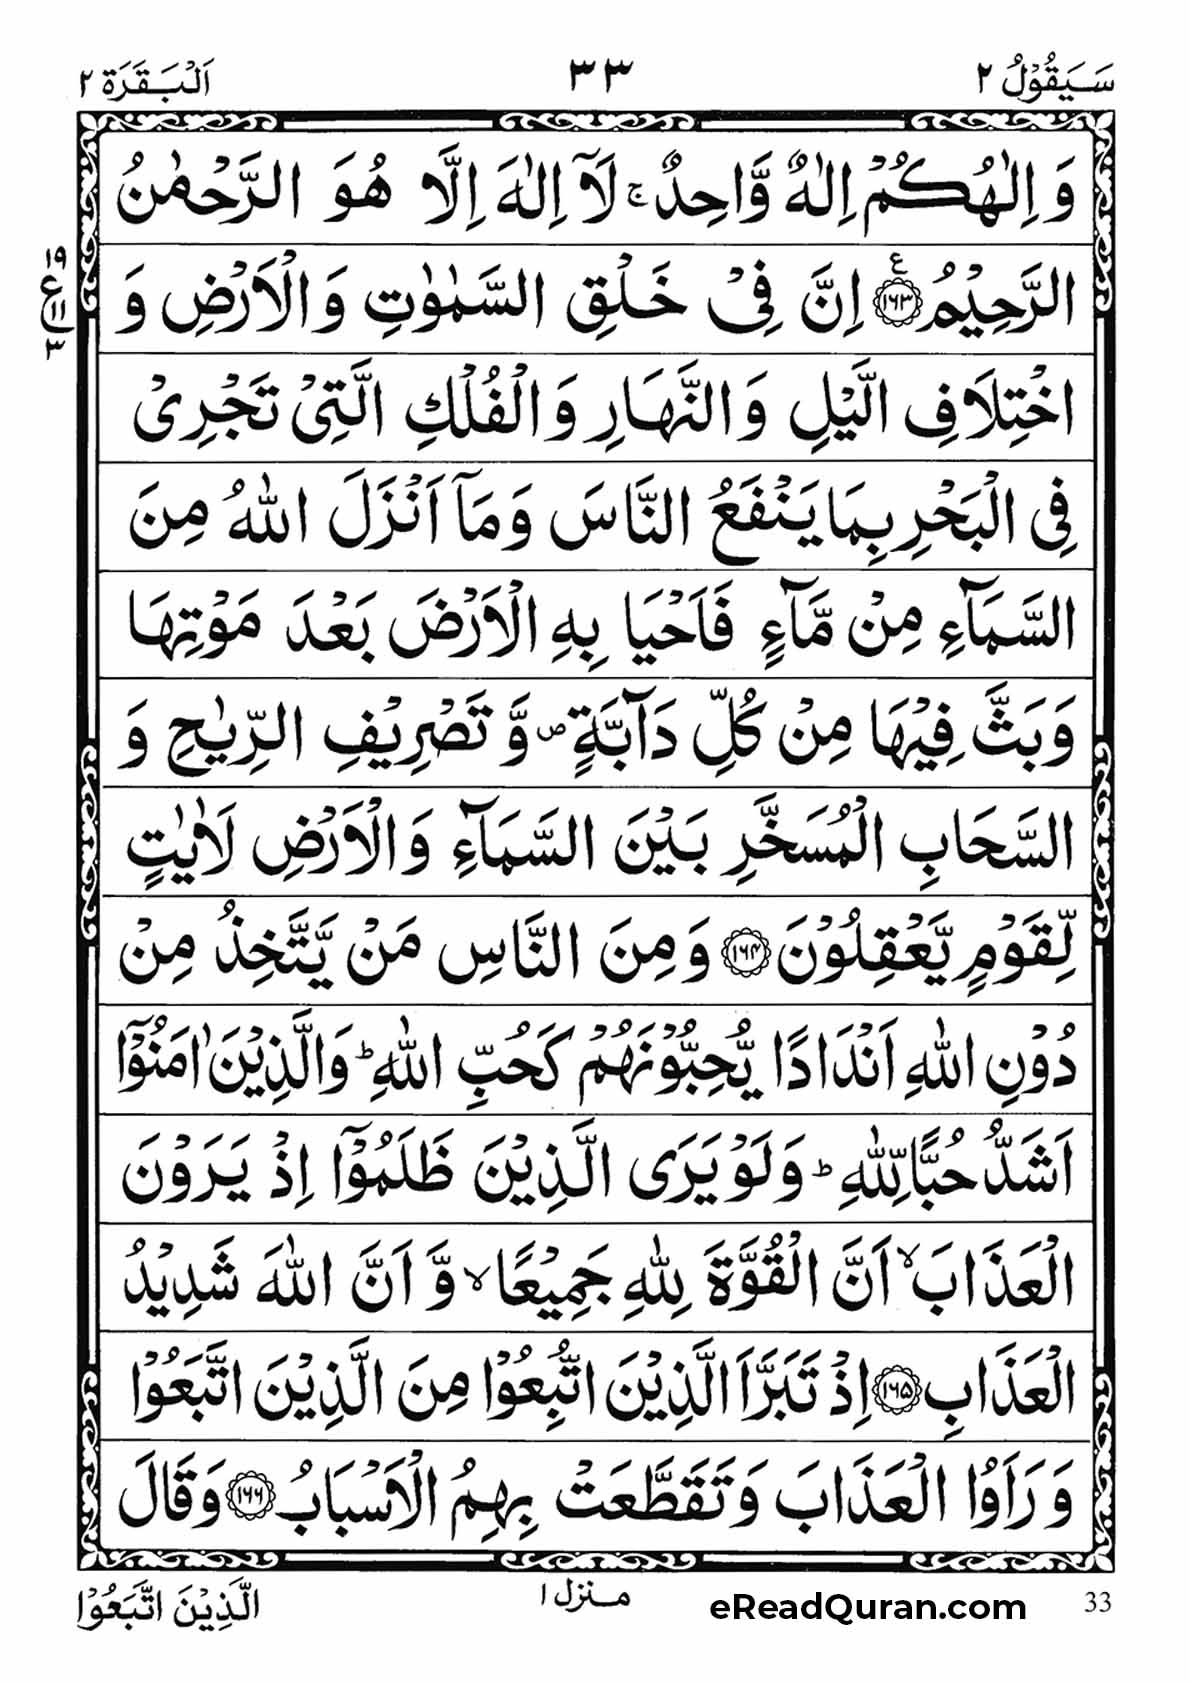 سَيَقُوْلُ ٢
٣٣
اَلْبَقَرَة ٢
وَ اِلٰهُكُمْ اِلٰهٌ وَّاحِدٌ ۚ لَآ اِلٰهَ اِلَّا هُوَ الرَّحْمٰنُ
الرَّحِيْمُ ﴿۱۶۳﴾ ع اِنَّ فِيْ خَلْقِ السَّمٰوٰتِ وَ الْاَرْضِ وَ
١٩
ع
١١
٣
اخْتِلَافِ الَّيْلِ وَ النَّهَارِ وَ الْفُلْكِ الَّتِيْ تَجْرِيْ
فِي الْبَحْرِ بِمَا يَنْفَعُ النَّاسَ وَ مَآ اَنْزَلَ اللّٰهُ مِنَ
السَّمَآءِ مِنْ مَّآءٍ فَاَحْيَا بِهِ الْاَرْضَ بَعْدَ مَوْتِهَا
وَ بَثَّ فِيْهَا مِنْ كُلِّ دَآبَّةٍ ۪ وَّ تَصْرِيْفِ الرِّيٰحِ وَ
السَّحَابِ الْمُسَخَّرِ بَيْنَ السَّمَآءِ وَ الْاَرْضِ لَاٰيٰتٍ
لِّقَوْمٍ يَّعْقِلُوْنَ ﴿۱۶۴﴾ وَ مِنَ النَّاسِ مَنْ يَّتَّخِذُ مِنْ
دُوْنِ اللّٰهِ اَنْدَادًا يُّحِبُّوْنَهُمْ كَحُبِّ اللّٰهِ ؕ وَ الَّذِيْنَ اٰمَنُوْٓا
اَشَدُّ حُبًّا لِّلّٰهِ ؕ وَ لَوْ يَرَى الَّذِيْنَ ظَلَمُوْٓا اِذْ يَرَوْنَ
الْعَذَابَ ۙ اَنَّ الْقُوَّةَ لِلّٰهِ جَمِيْعًا ۙ وَّ اَنَّ اللّٰهَ شَدِيْدُ
الْعَذَابِ ﴿۱۶۵﴾ اِذْ تَبَرَّاَ الَّذِيْنَ اتُّبِعُوْا مِنَ الَّذِيْنَ اتَّبَعُوْا
وَ رَاَوُا الْعَذَابَ وَ تَقَطَّعَتْ بِهِمُ الْاَسْبَابُ ﴿۱۶۶﴾ وَ قَالَ
الَّذِيْنَ اتَّبَعُوْا
منزل ١
eReadQuran.com
33